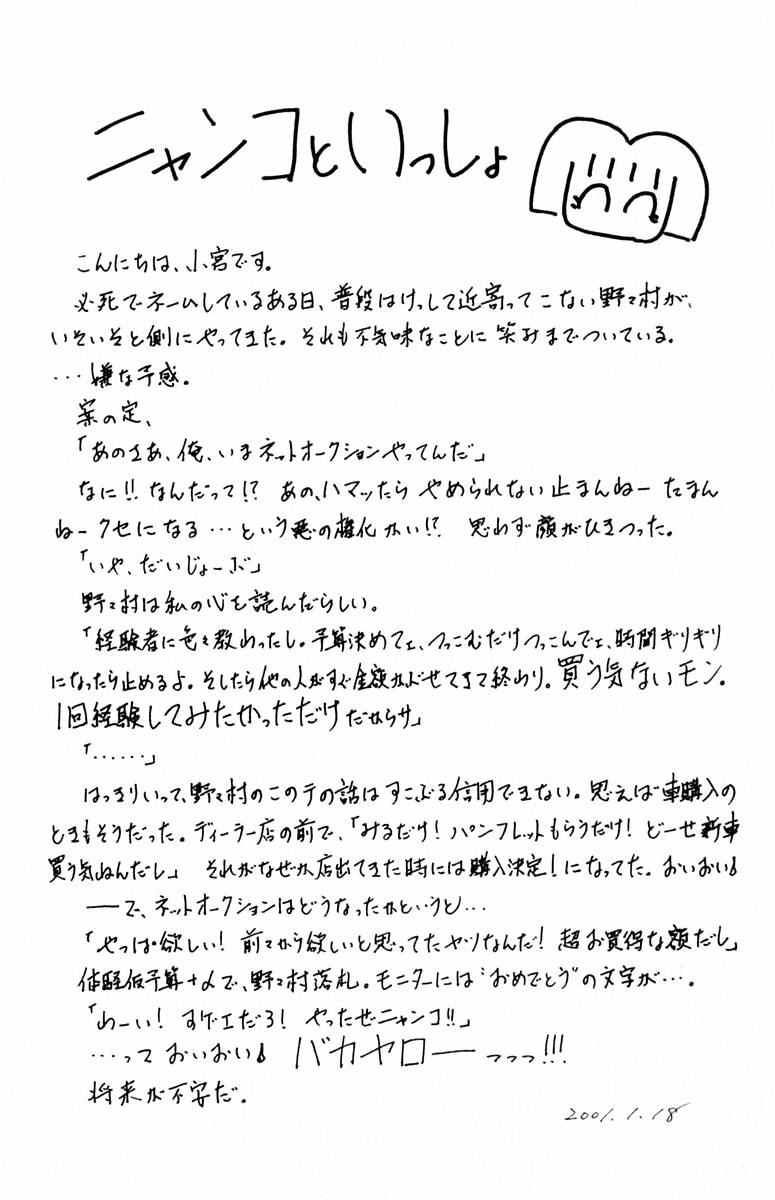 ニャンコといっしょ
こんにちは、小宮です。
必死でネームしているある日、普段はけっして近寄ってこない野々村が、
いそいそと側にやってきた。それも不気味なことに笑みまでついている。
…嫌な予感。
案の定、
「あのさあ、俺、いまネットオークションやってんだ」
なに!! なんだって!? あの、ハマッたら やめられない止まんねー たまん
ねークセになる…という悪の権化かい!? 思わず顔がひきつった。
「いや、だいじょーぶ」
野々村は私の心を読んだらしい。
「経験者に色々教わったし。予算決めてェ、つっこむだけつっこんでェ、時間ギリギリ
になったら止めるよ。そしたら他の人がすぐ金額かぶせてきて終わり。買う気ないモン。
1回経験してみたかっただけだからサ」
「……」
はっきりいって、野々村のこのテの話はすこぶる信用できない。思えば車購入の
ときもそうだった。ディーラー店の前で、「みるだけ! パンフレットもらうだけ! どーせ新車
買う気ねんだし」 それがなぜか店出てきた時には購入決定!になってた。おいおい♪
――で、ネットオークションはどうなったかというと…
「やっぱ欲しい! 前々から欲しいと思ってたヤツなんだ! 超お買得な額だし」
予算+αで、野々村落札。モニターには"おめでとう"の文字が…。
「わーい! すげェだろ! やったぜニャンコ!!」
…って おいおい♪ バカヤローーっっっ!!!
将来が不安だ。
2001.1.18